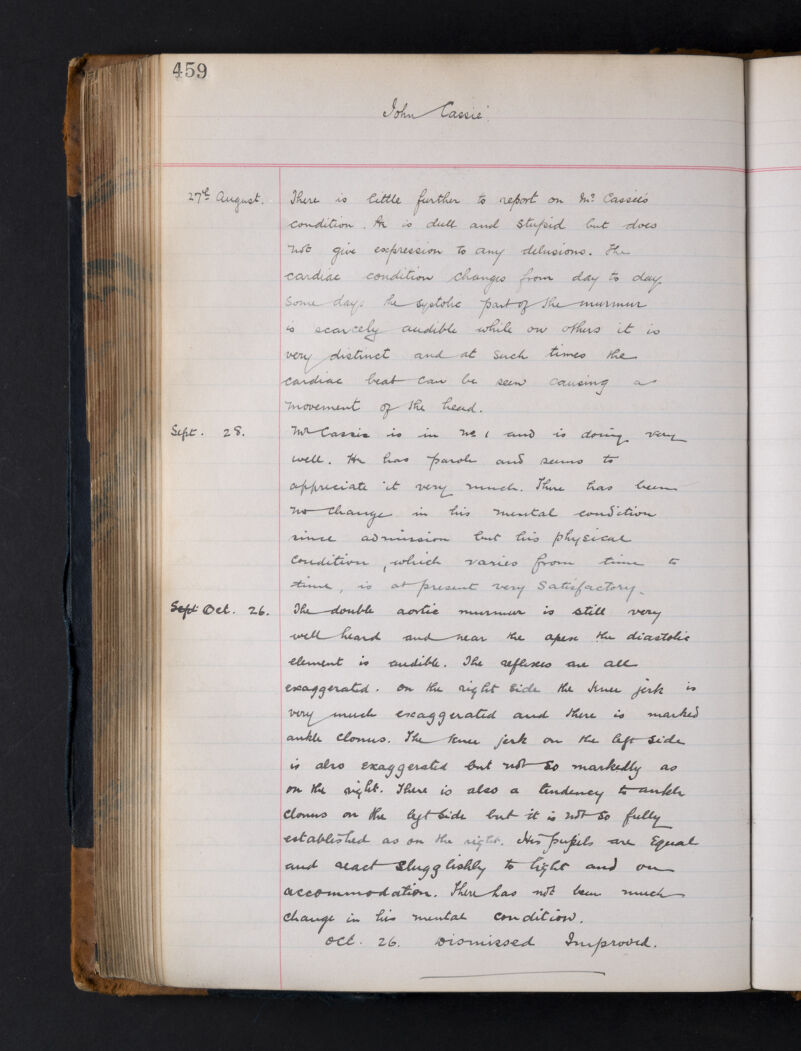 459
John Cassie.
27th August. There is little further to report on Mr Cassie's
condition. He is dull and stupid but does
not give expression to any delusions. The
cardiac condition changes from day to day.
Some days the systolic part of the murmur
is scarcely audible while on others it is
very distinct and at such times the
cardiac beat can be seen causing a
movement of the head.
Sept. 28. Mr Cassie is in No 1 and is doing very
well. He has parole and seems to
appreciate it very much. There has been
no change in his mental condition
since admission but his physical
condition, which varies from time to
time, is at present very satisfactory.
Sept Oct. 26. The double aortic murmur is still very
well heard and near the apex the diastolic
element is audible. The reflexes are all
exaggerated. On the right side the knee jerk is
very much exaggerated and there is marked
ankle clonus. The knee jerk on the left side
is also exaggerated but not so markedly as
on the right. There is also a tendency to ankle
clonus on the left side but it is not so fully
established as on the right. His pupils are equal
and react sluggishly to light and on
accommodation. There has not been much
change in his mental condition.
Oct. 26. Dismissed Improved.